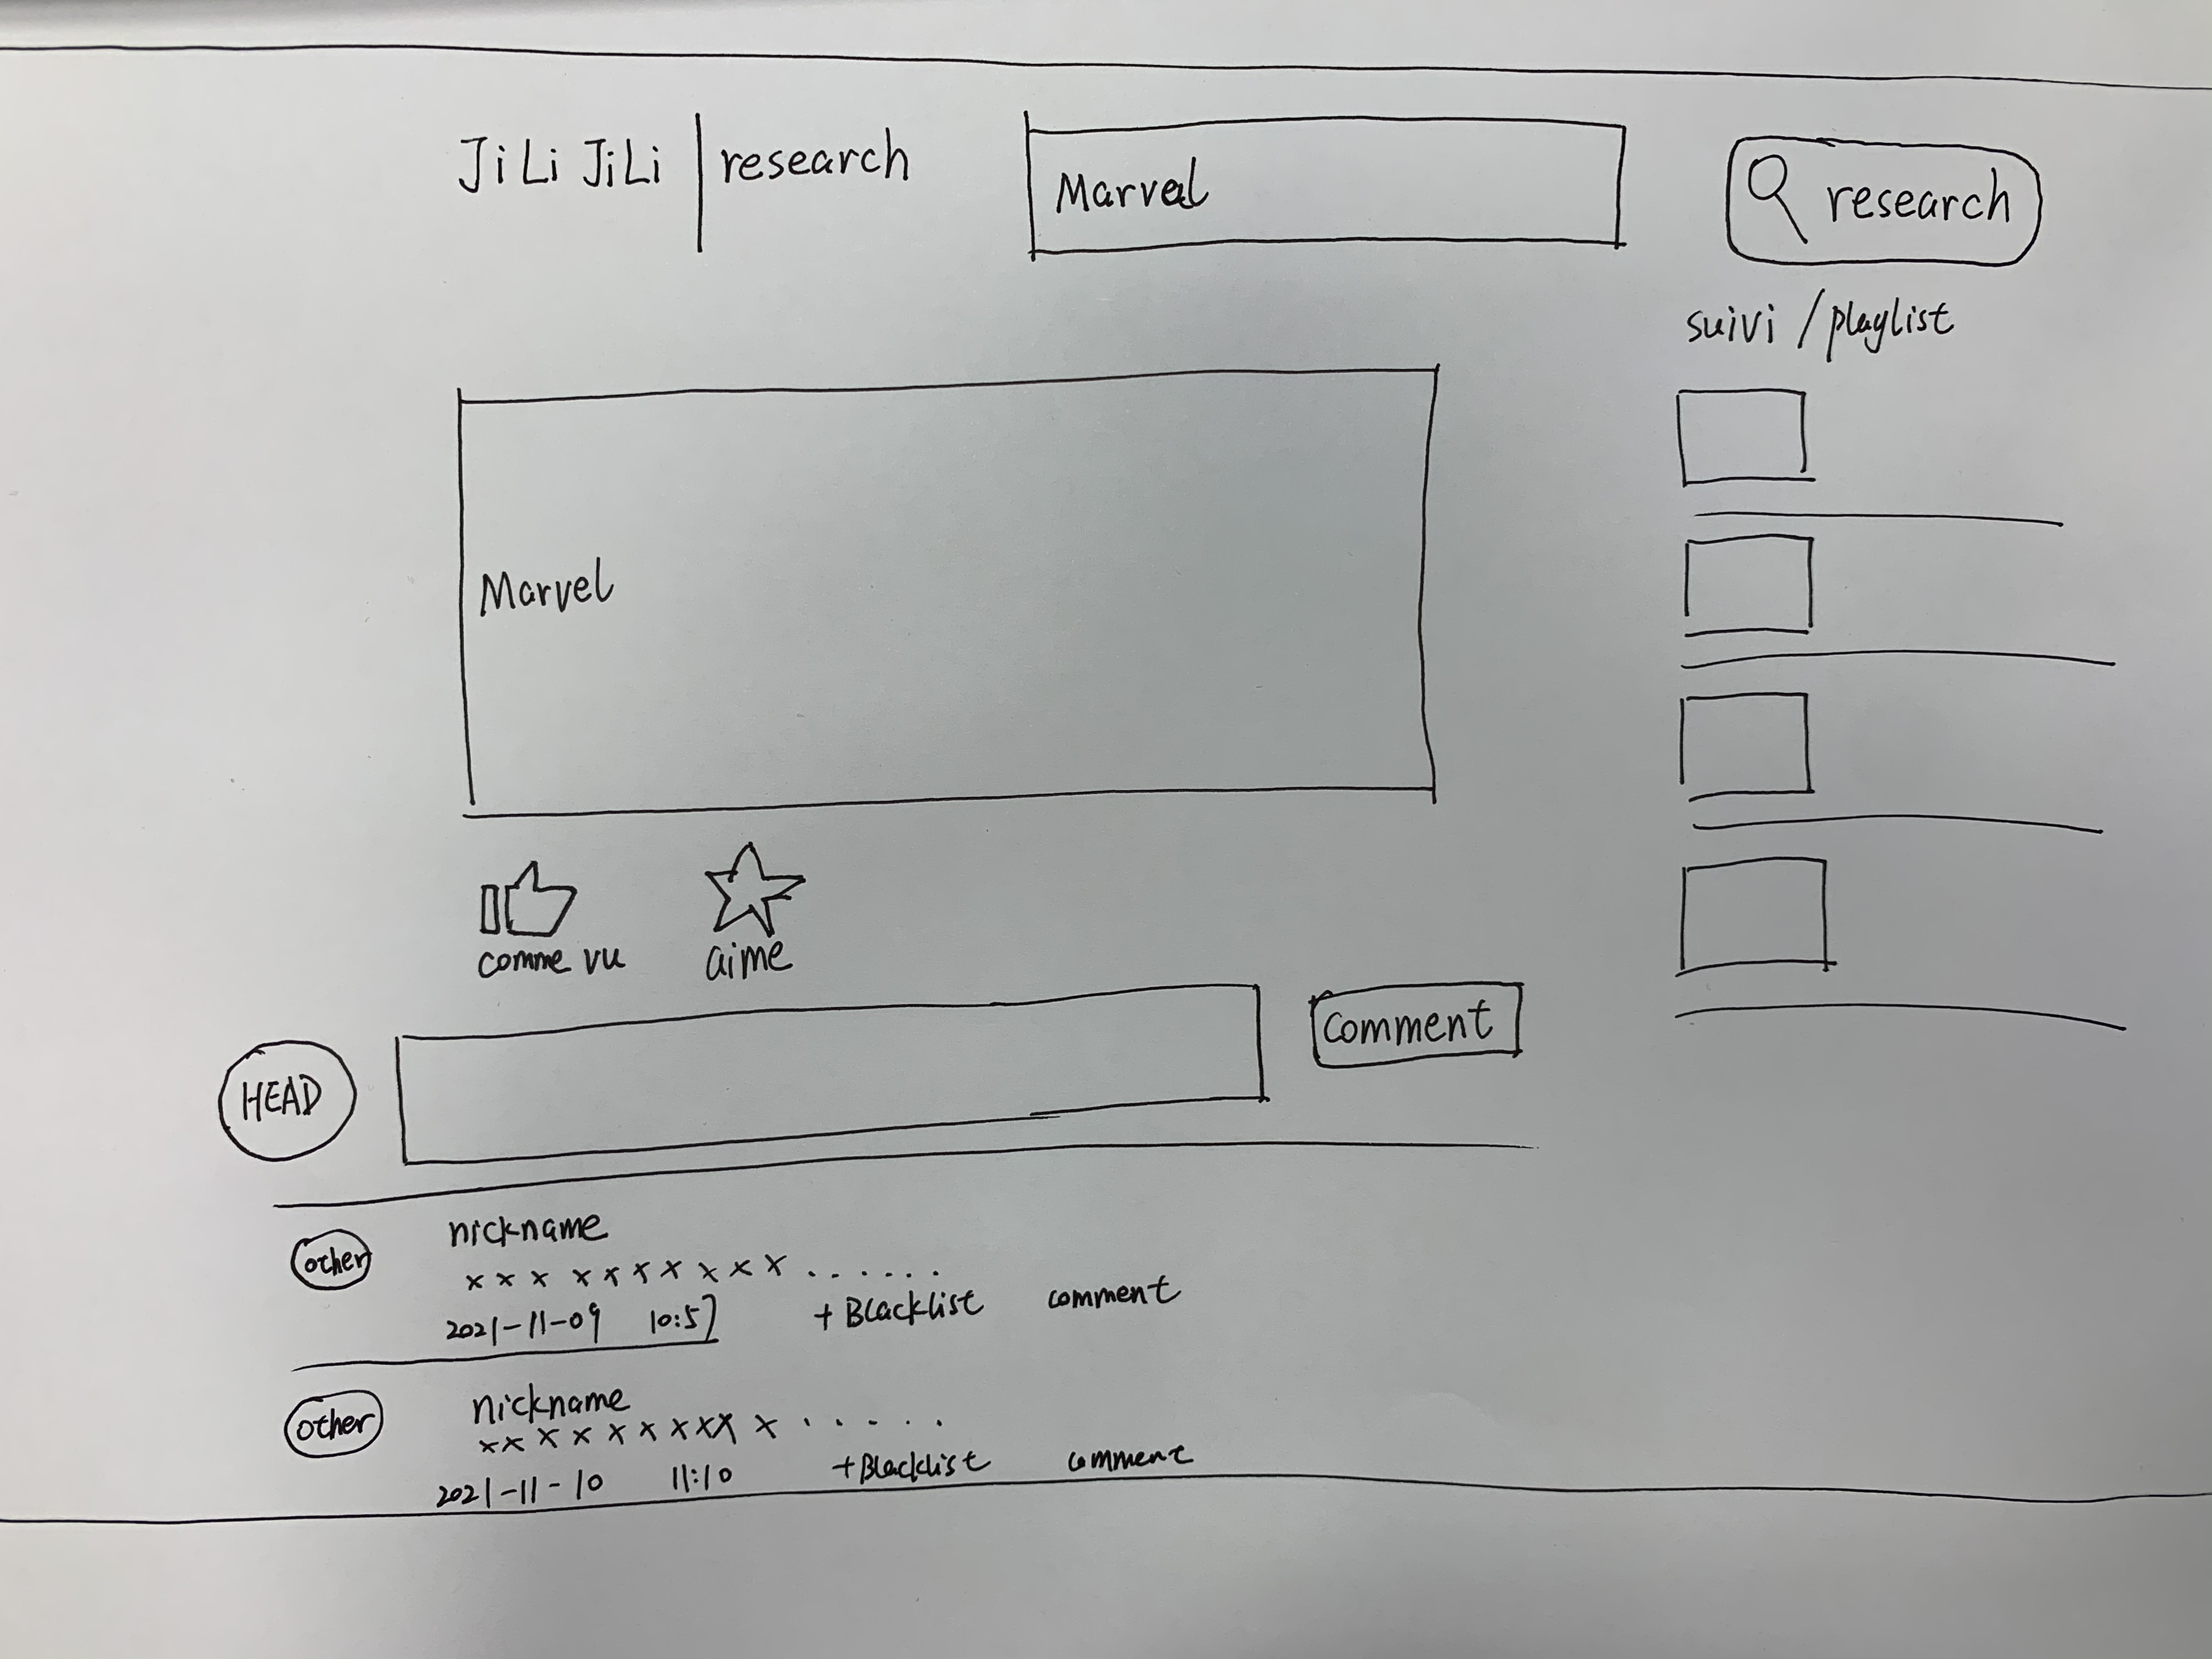 JiLi JiLi research
Marvel
research
suivi / playlist
Marvel
comme vu
aime
HEAD
comment
other
nickname
x x x x x x x x x x . . . . . .
2021-11-09 10:57 + Blacklist comment
other
nickname
x x x x x x x x x x . . . . .
2021-11-10 11:10 + Blacklist comment